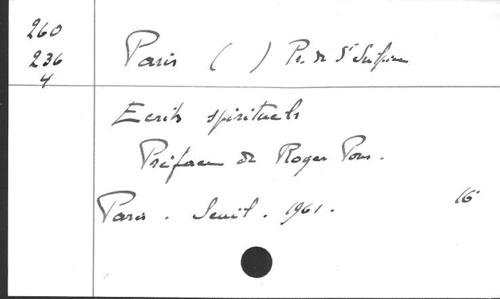 260
236
4
Paris ( ) Pr. de St Sulpice
Ecrits spirituels
Préface de Roger Pons.
Paris. Seuil. 1961. 16°